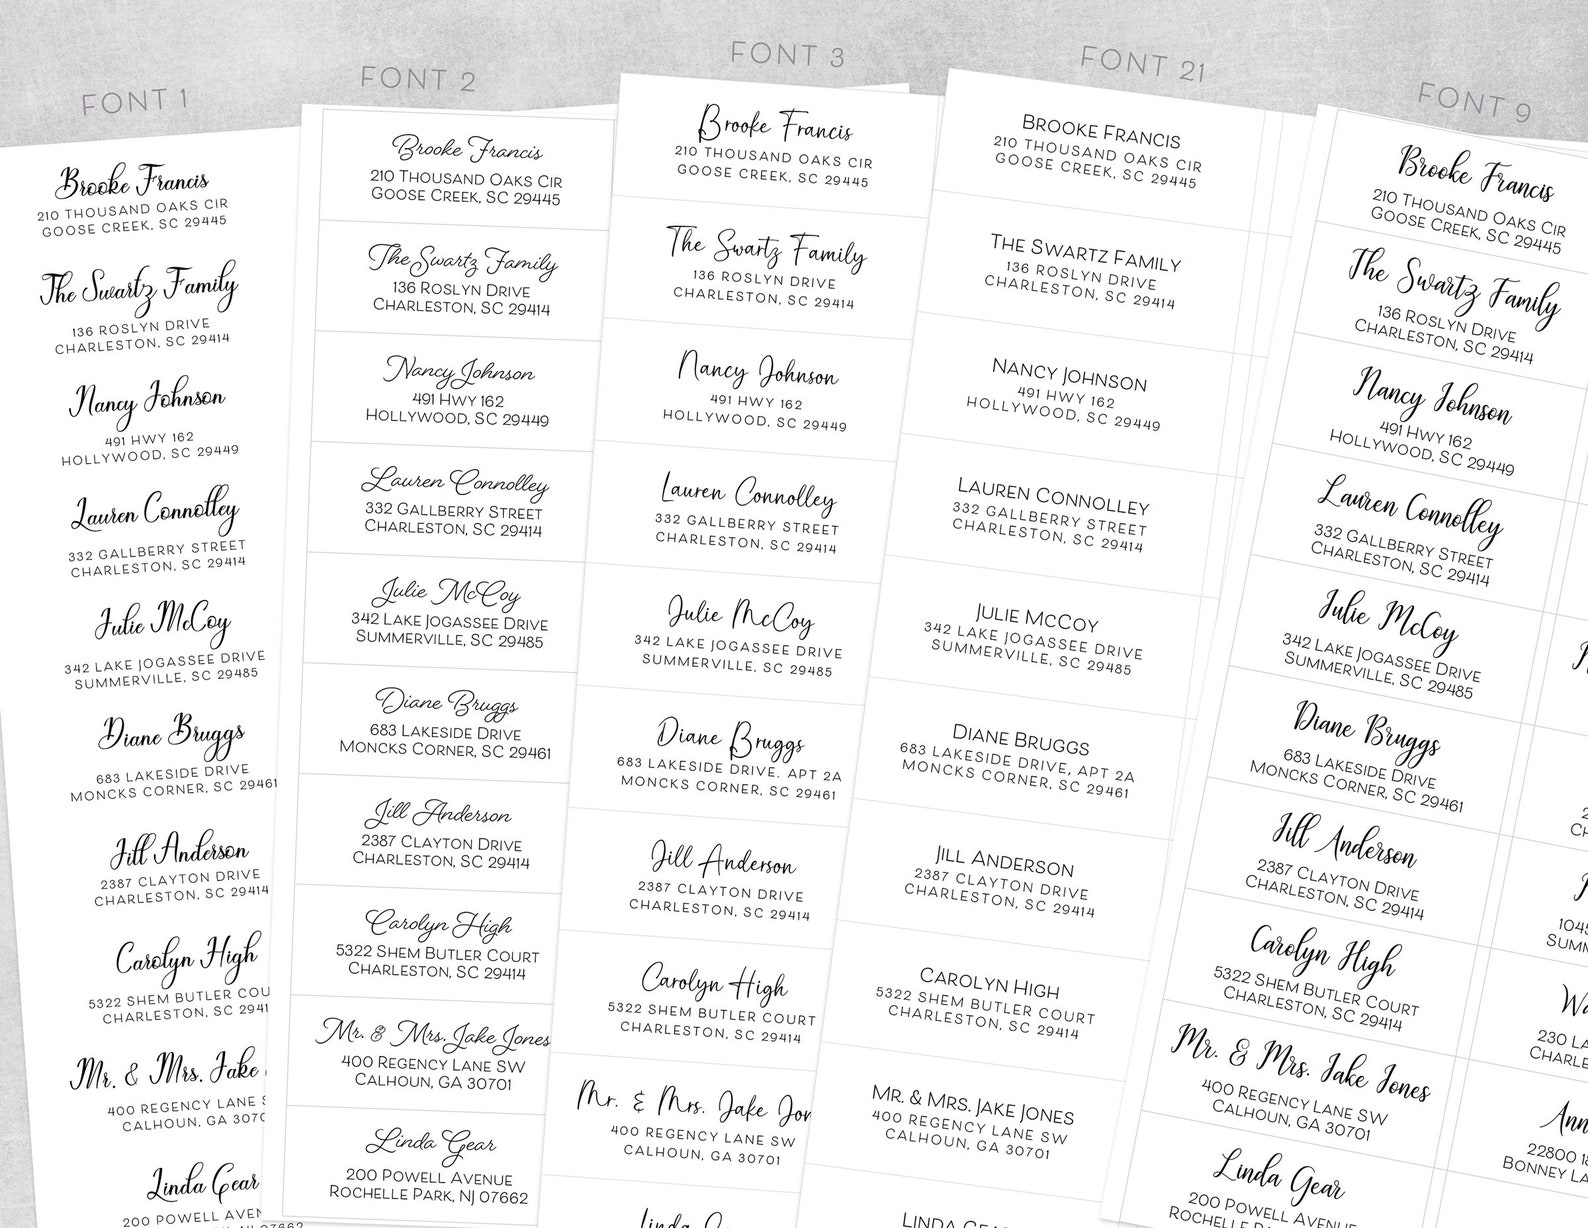 FONT 1
Brooke Francis
210 THOUSAND OAKS CIR
GOOSE CREEK, SC 29445
The Swartz Family
136 ROSLYN DRIVE
CHARLESTON, SC 29414
Nancy Johnson
491 HWY 162
HOLLYWOOD, SC 29449
Lauren Connolley
332 GALLBERRY STREET
CHARLESTON, SC 29414
Julie McCoy
342 LAKE JOGASSEE DRIVE
SUMMERVILLE, SC 29485
Diane Bruggs
683 LAKESIDE DRIVE
MONCKS CORNER, SC 29461
Jill Anderson
2387 CLAYTON DRIVE
CHARLESTON, SC 29414
Carolyn High
5322 SHEM BUTLER COU
CHARLESTON, SC 2941
Mr. & Mrs. Jake
400 REGENCY LANE S
CALHOUN, GA 3070
Linda Gear
200 POWELL AVEN
NJ 07662
FONT 2
Brooke Francis
210 THOUSAND OAKS CIR
GOOSE CREEK, SC 29445
The Swartz Family
136 ROSLYN DRIVE
CHARLESTON, SC 29414
Nancy Johnson
491 HWY 162
HOLLYWOOD, SC 29449
Lauren Connolley
332 GALLBERRY STREET
CHARLESTON, SC 29414
Julie McCoy
342 LAKE JOGASSEE DRIVE
SUMMERVILLE, SC 29485
Diane Bruggs
683 LAKESIDE DRIVE
MONCKS CORNER, SC 29461
Jill Anderson
2387 CLAYTON DRIVE
CHARLESTON, SC 29414
Carolyn High
5322 SHEM BUTLER COURT
CHARLESTON, SC 29414
Mr. & Mrs. Jake Jones
400 REGENCY LANE SW
CALHOUN, GA 30701
Linda Gear
200 POWELL AVENUE
ROCHELLE PARK, NJ 07662
FONT 3
Brooke Francis
210 THOUSAND OAKS CIR
GOOSE CREEK, SC 29445
The Swartz Family
136 ROSLYN DRIVE
CHARLESTON, SC 29414
Nancy Johnson
491 HWY 162
HOLLYWOOD, SC 29449
Lauren Connolley
332 GALLBERRY STREET
CHARLESTON, SC 29414
Julie McCoy
342 LAKE JOGASSEE DRIVE
SUMMERVILLE, SC 29485
Diane Bruggs
683 LAKESIDE DRIVE, APT 2A
MONCKS CORNER, SC 29461
Jill Anderson
2387 CLAYTON DRIVE
CHARLESTON, SC 29414
Carolyn High
5322 SHEM BUTLER COURT
CHARLESTON, SC 29414
Mr. & Mrs. Jake Jon
400 REGENCY LANE SW
CALHOUN, GA 30701
Linda
FONT 21
BROOKE FRANCIS
210 THOUSAND OAKS CIR
GOOSE CREEK, SC 29445
THE SWARTZ FAMILY
136 ROSLYN DRIVE
CHARLESTON, SC 29414
NANCY JOHNSON
491 HWY 162
HOLLYWOOD, SC 29449
LAUREN CONNOLLEY
332 GALLBERRY STREET
CHARLESTON, SC 29414
JULIE MCCOY
342 LAKE JOGASSEE DRIVE
SUMMERVILLE, SC 29485
DIANE BRUGGS
683 LAKESIDE DRIVE, APT 2A
MONCKS CORNER, SC 29461
JILL ANDERSON
2387 CLAYTON DRIVE
CHARLESTON, SC 29414
CAROLYN HIGH
5322 SHEM BUTLER COURT
CHARLESTON, SC 29414
MR. & MRS. JAKE JONES
400 REGENCY LANE SW
CALHOUN, GA 30701
LINDA GEAR
FONT 9
Brooke Francis
210 THOUSAND OAKS CIR
GOOSE CREEK, SC 29445
The Swartz Family
136 ROSLYN DRIVE
CHARLESTON, SC 29414
Nancy Johnson
491 HWY 162
HOLLYWOOD, SC 29449
Lauren Connolley
332 GALLBERRY STREET
CHARLESTON, SC 29414
Julie McCoy
342 LAKE JOGASSEE DRIVE
SUMMERVILLE, SC 29485
Diane Bruggs
683 LAKESIDE DRIVE
MONCKS CORNER, SC 29461
Jill Anderson
2387 CLAYTON DRIVE
CHARLESTON, SC 29414
Carolyn High
5322 SHEM BUTLER COURT
CHARLESTON, SC 29414
Mr. & Mrs. Jake Jones
400 REGENCY LANE SW
CALHOUN, GA 30701
Linda Gear
200 POWELL AVENUE
ROCHELLE PARK, NJ
2
CH
1045
SUMM
Wa
230 LA
CHARLE
Ann
22800 18
BONNEY LA